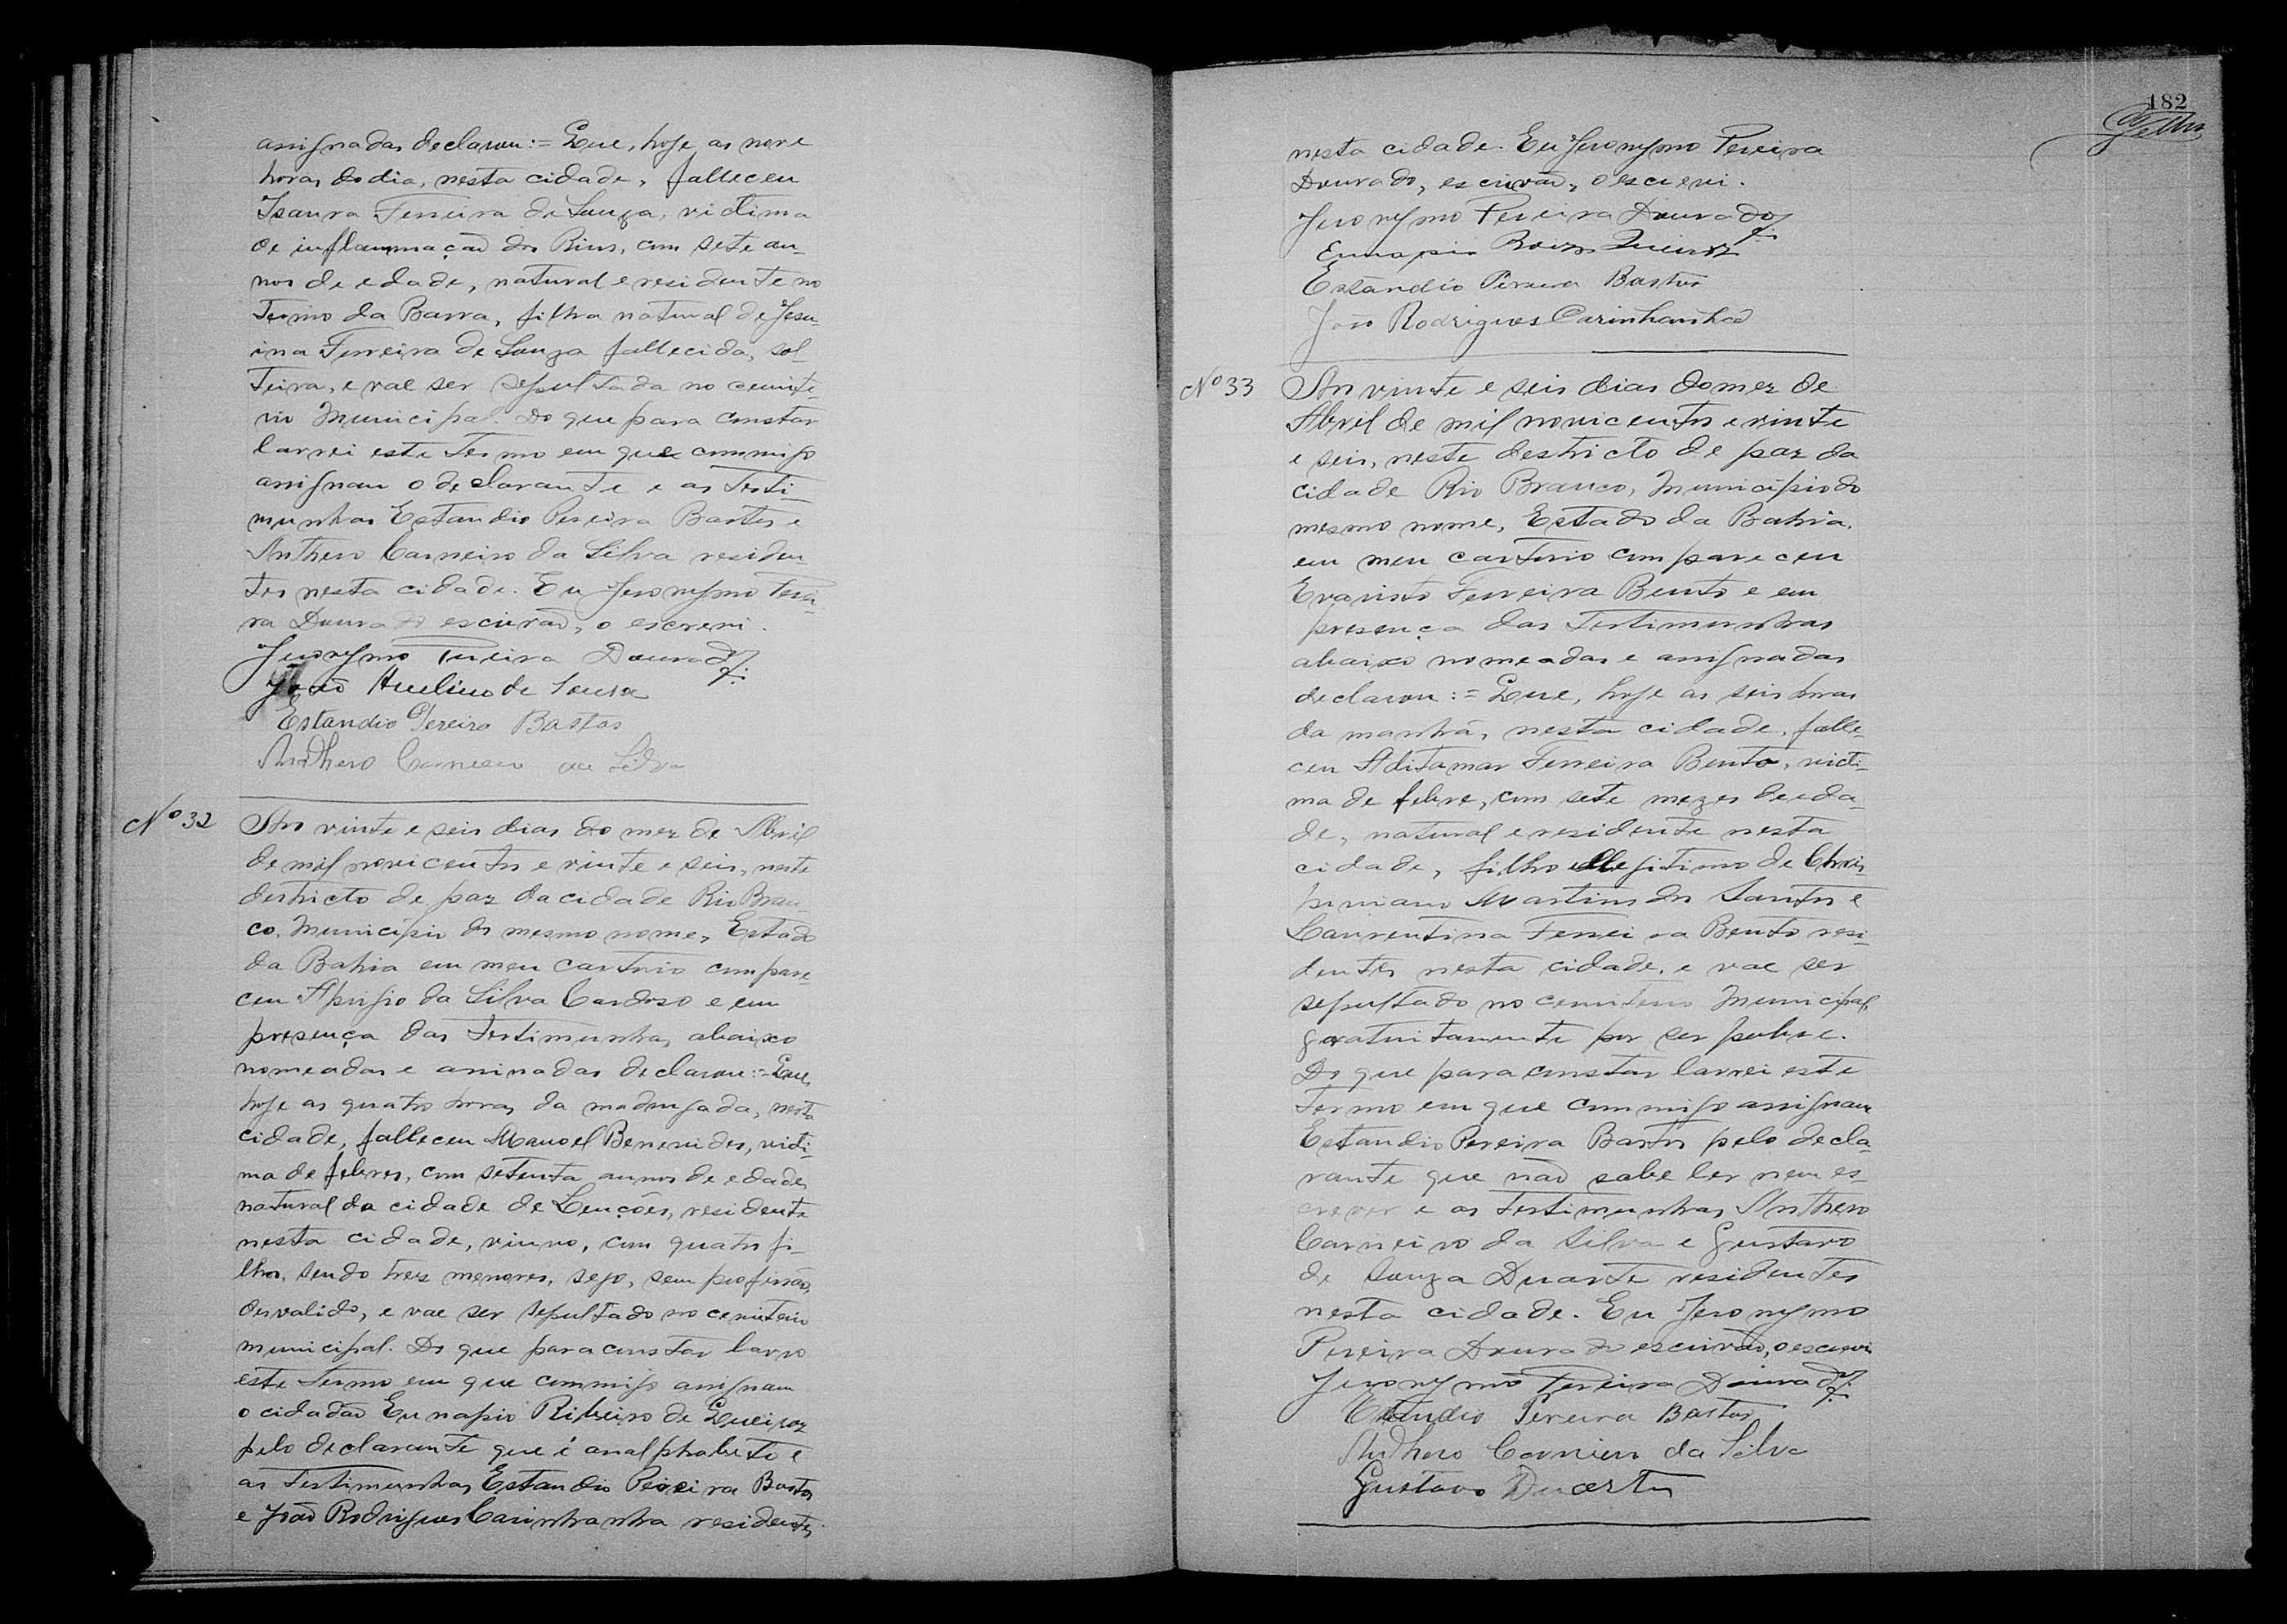 assignadas declarou:= Que, hoje as nove
horas do dia, nesta cidade, falleceu
Isaura Ferreira de Souza, victima
de inflammação dos Rins, com sete an-
nos de edade, natural e residente no
Termo da Barra, filha natural de Jesu-
ina Ferreira de Souza fallecida, sol-
teira, e vae ser sepultada no cemite-
rio Municipal. Do que para constar
lavrei este termo em que commigo
assignam o declarante e as testi-
munhas Estandio Pereira Bastos e
Anthero Carneiro da Silva residen-
tes nesta cidade. Eu Jeronymo Perei-
ra Dourado escrivão, o escrevi.
Jeronymo Pereira Dourado
João Avelino de Sousa
Estandio Pereira Bastos
Anthero Carneiro da Silva
Nº 32
Aos vinte e seis dias do mez de Abril
de mil novicentos e vinte e seis, neste
destricto de paz da cidade Rio Bran-
co, Municipio do mesmo nome, Estado
da Bahia em meu cartorio compare
ceu Aprigio da Silva Cardoso e em
presença das testimunhas abaixo
nomeadas e assinadas declarou:= Que,
hoje as quatro horas da madrugada, nesta
cidade, falleceu Manoel Benevides, victi-
ma de febres, com setenta annos de edade,
natural da cidade de Lençóes, residente
nesta cidade, viuvo, com quatro fi-
lhos, sendo trez menores, sego, sem profissão,
desvalido, e vae ser sepultado no cemiterio
municipal. Do que para constar lavro
este termo em que commigo assignam
o cidadão Eunapio Ribeiro de Queiroz
pelo declarante que é analphabeto e
as testimunhas Estandio Pereira Bastos
e João Rodrigues Carinhanha residentes
182
nesta cidade. Eu Jeronymo Pereira
Dourado, escrivão, o escrevi.
Jeronymo Pereira Dourado
Eunapio Queiroz
Estandio Pereira Bastos
João Rodrigues Carinhanha
Nº 33
Aos vinte e seis dias do mez de
Abril de mil novicentos e vinte
e seis, neste destricto de paz da
cidade Rio Branco, Municipio do
mesmo nome, Estado da Bahia,
em meu cartorio compareceu
Evaristo Ferreira Bento e em
presença das testimunhas
abaixo nomeadas e assignadas
declarou:= Que, hoje as seis horas
da manhã, nesta cidade, falle-
ceu Aditamar Ferreira Bento, victi-
ma de febre, com sete mezes de eda-
de, natural e residente nesta
cidade, filho illegitimo de Chris
piniano Martins dos Santos e
Laurentina Ferreira Bento resi-
dentes nesta cidade, e vae ser
sepultado no cemiterio Municipal,
gratuitamente por ser pobre.
Do que para constar lavrei este
termo em que commigo assignam
Estandio Pereira Bastos pelo decla-
rante que não sabe ler nem es-
crever e as testimunhas Anthero
Carneiro da Silva e Gustavo
de Souza Duarte residentes
nesta cidade. Eu Jeronymo
Pereira Dourado escrivão, o escrevi
Jeronymo Pereira Dourado
Estandio Pereira Bastos
Anthero Carneiro da Silva
Gustavo Duarte